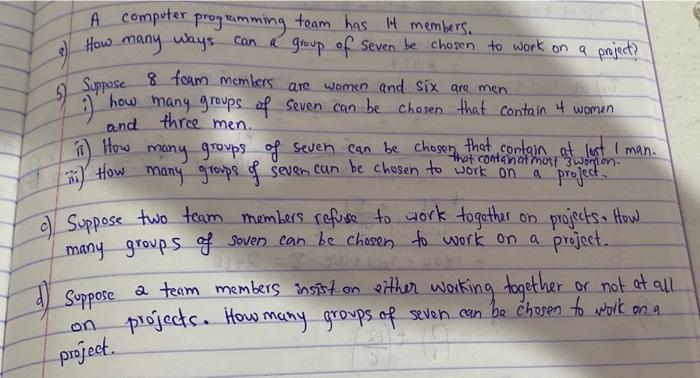 A computer programming team has 14 members.
a) How many ways can a group of seven be chosen to work on a project?
b) Suppose 8 team members are women and six are men
i) how many groups of seven can be chosen that contain 4 women
and three men.
ii) How many groups of seven can be chosen that contain at lest 1 man.
that contain at most 3 women.
iii) How many groups of seven can be chosen to work on a project.
c) Suppose two team members refuse to work together on projects. How
many groups of seven can be chosen to work on a project.
d) Suppose 2 team members insist on either working together or not at all
on projects. How many groups of seven can be chosen to work on a
project.